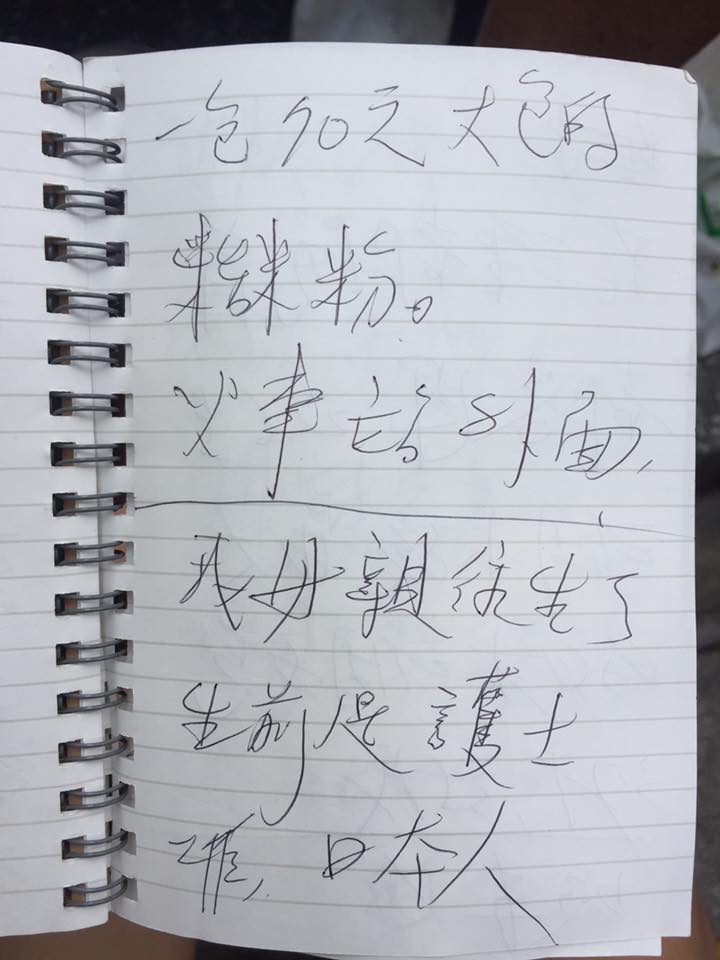 一包90元大包的
糙米粉。
火車站外面,
我母親往生了
生前是護士
日本人